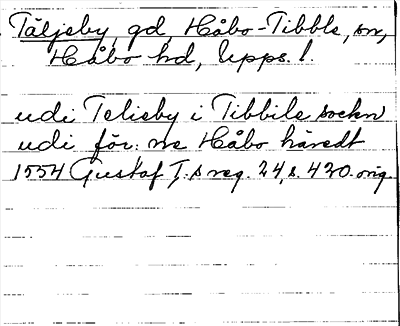 Täljeby, gd, Håbo-Tibble, sn,
Håbo hd, Upps. l.
udi Telieby i Tibbile sockn
udi för: ne Håbo häredt
1554 Gustaf I:s reg. 24, s. 420. orig.